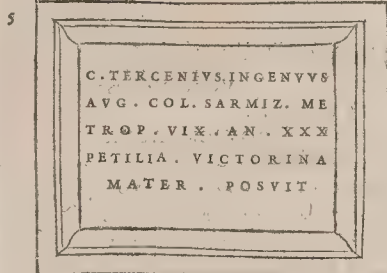 5
C. TERCENIVS. INGENVVS
AVG. COL. SARMIZ. ME
TROP. VIX. AN. XXX
PETILIA. VICTORINA
MATER. POSVIT